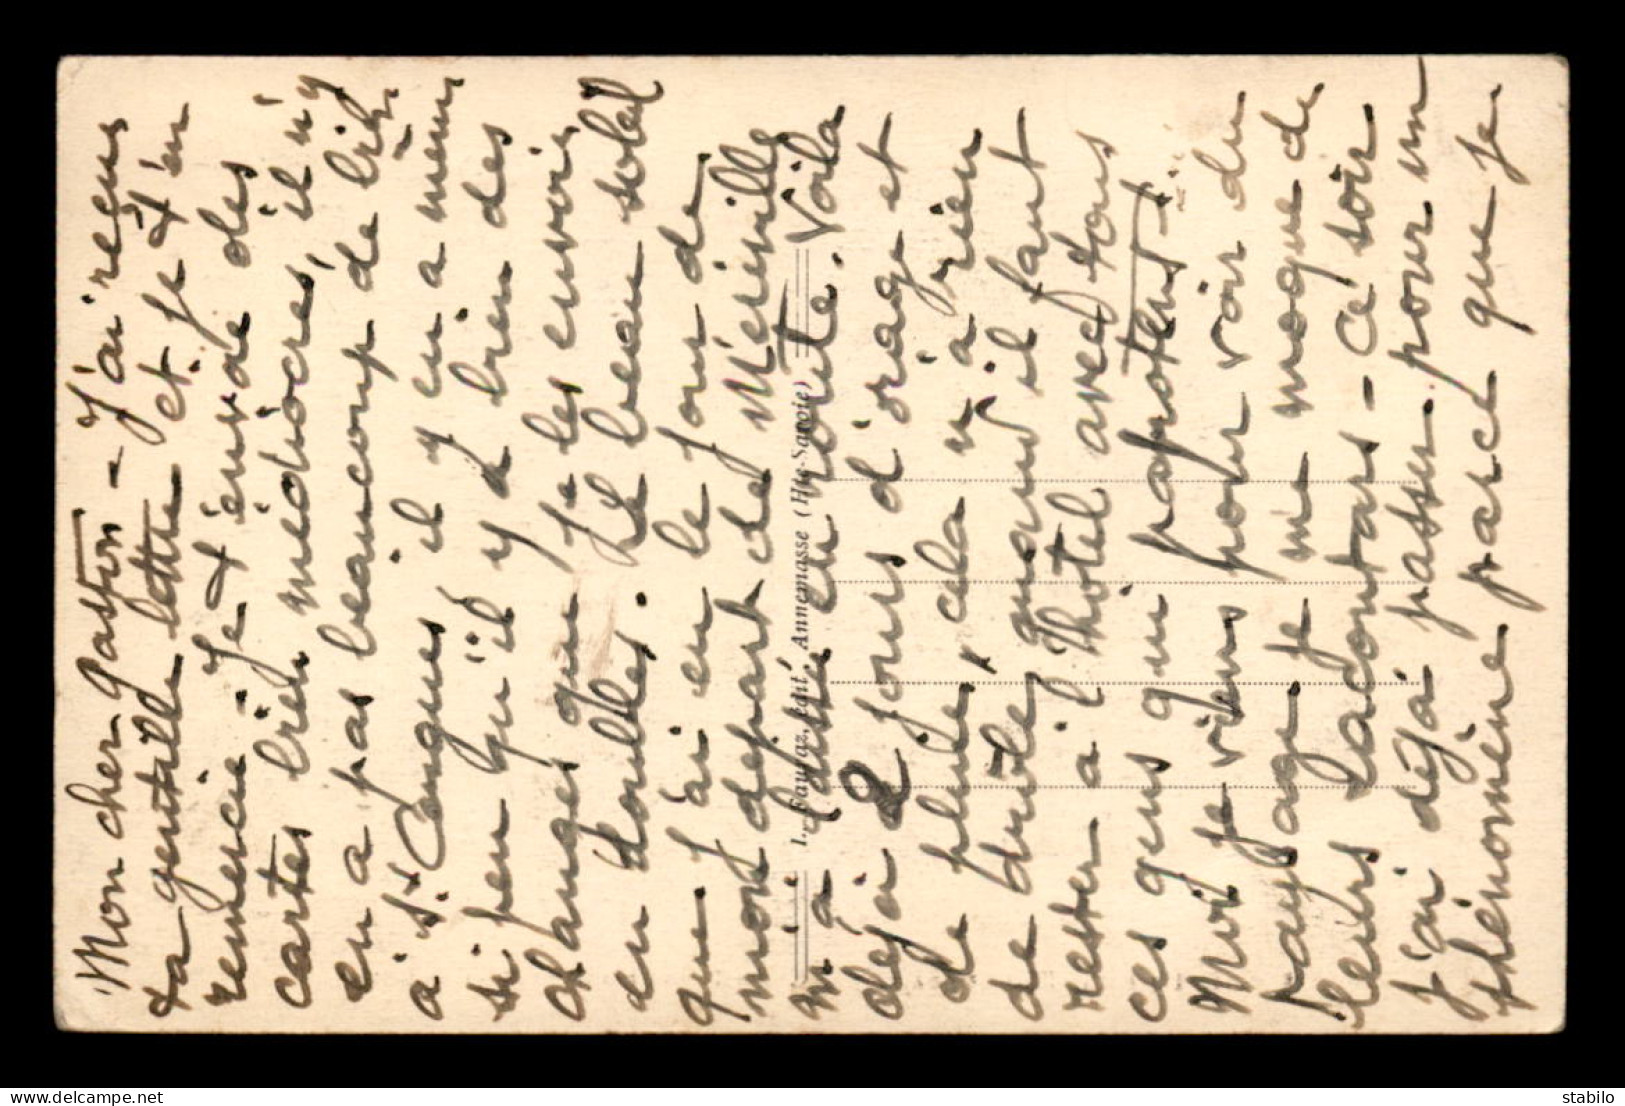 Mon cher Gaston - J'ai reçus
ta gentille lettre et je t'en
remercie - Je t'envoie des
cartes bien médiocres, il n'y
en a pas beaucoup de bien
à St Cergues, il y en a même
si peu qu'il y a bien des
changes que je les envoie
en double. Le beau soleil
que j'ai eu le jour de
mon départ de Méréville
m'a dans en route. Voila
déjà 2 jours d'orage et
de pluie, cela n'a rien
de drôle, quand il faut
rester à l'hôtel avec tous
ces gens qui papotent!
Moi je viens pour voir du
paysage je me moque de
leurs racontars - Ce soir
j'ai déjà passer pour un
phénomène parce que je
L. Fauraz, édit., Annemasse (Hte-Savoie)
delcampe.net
stabilo